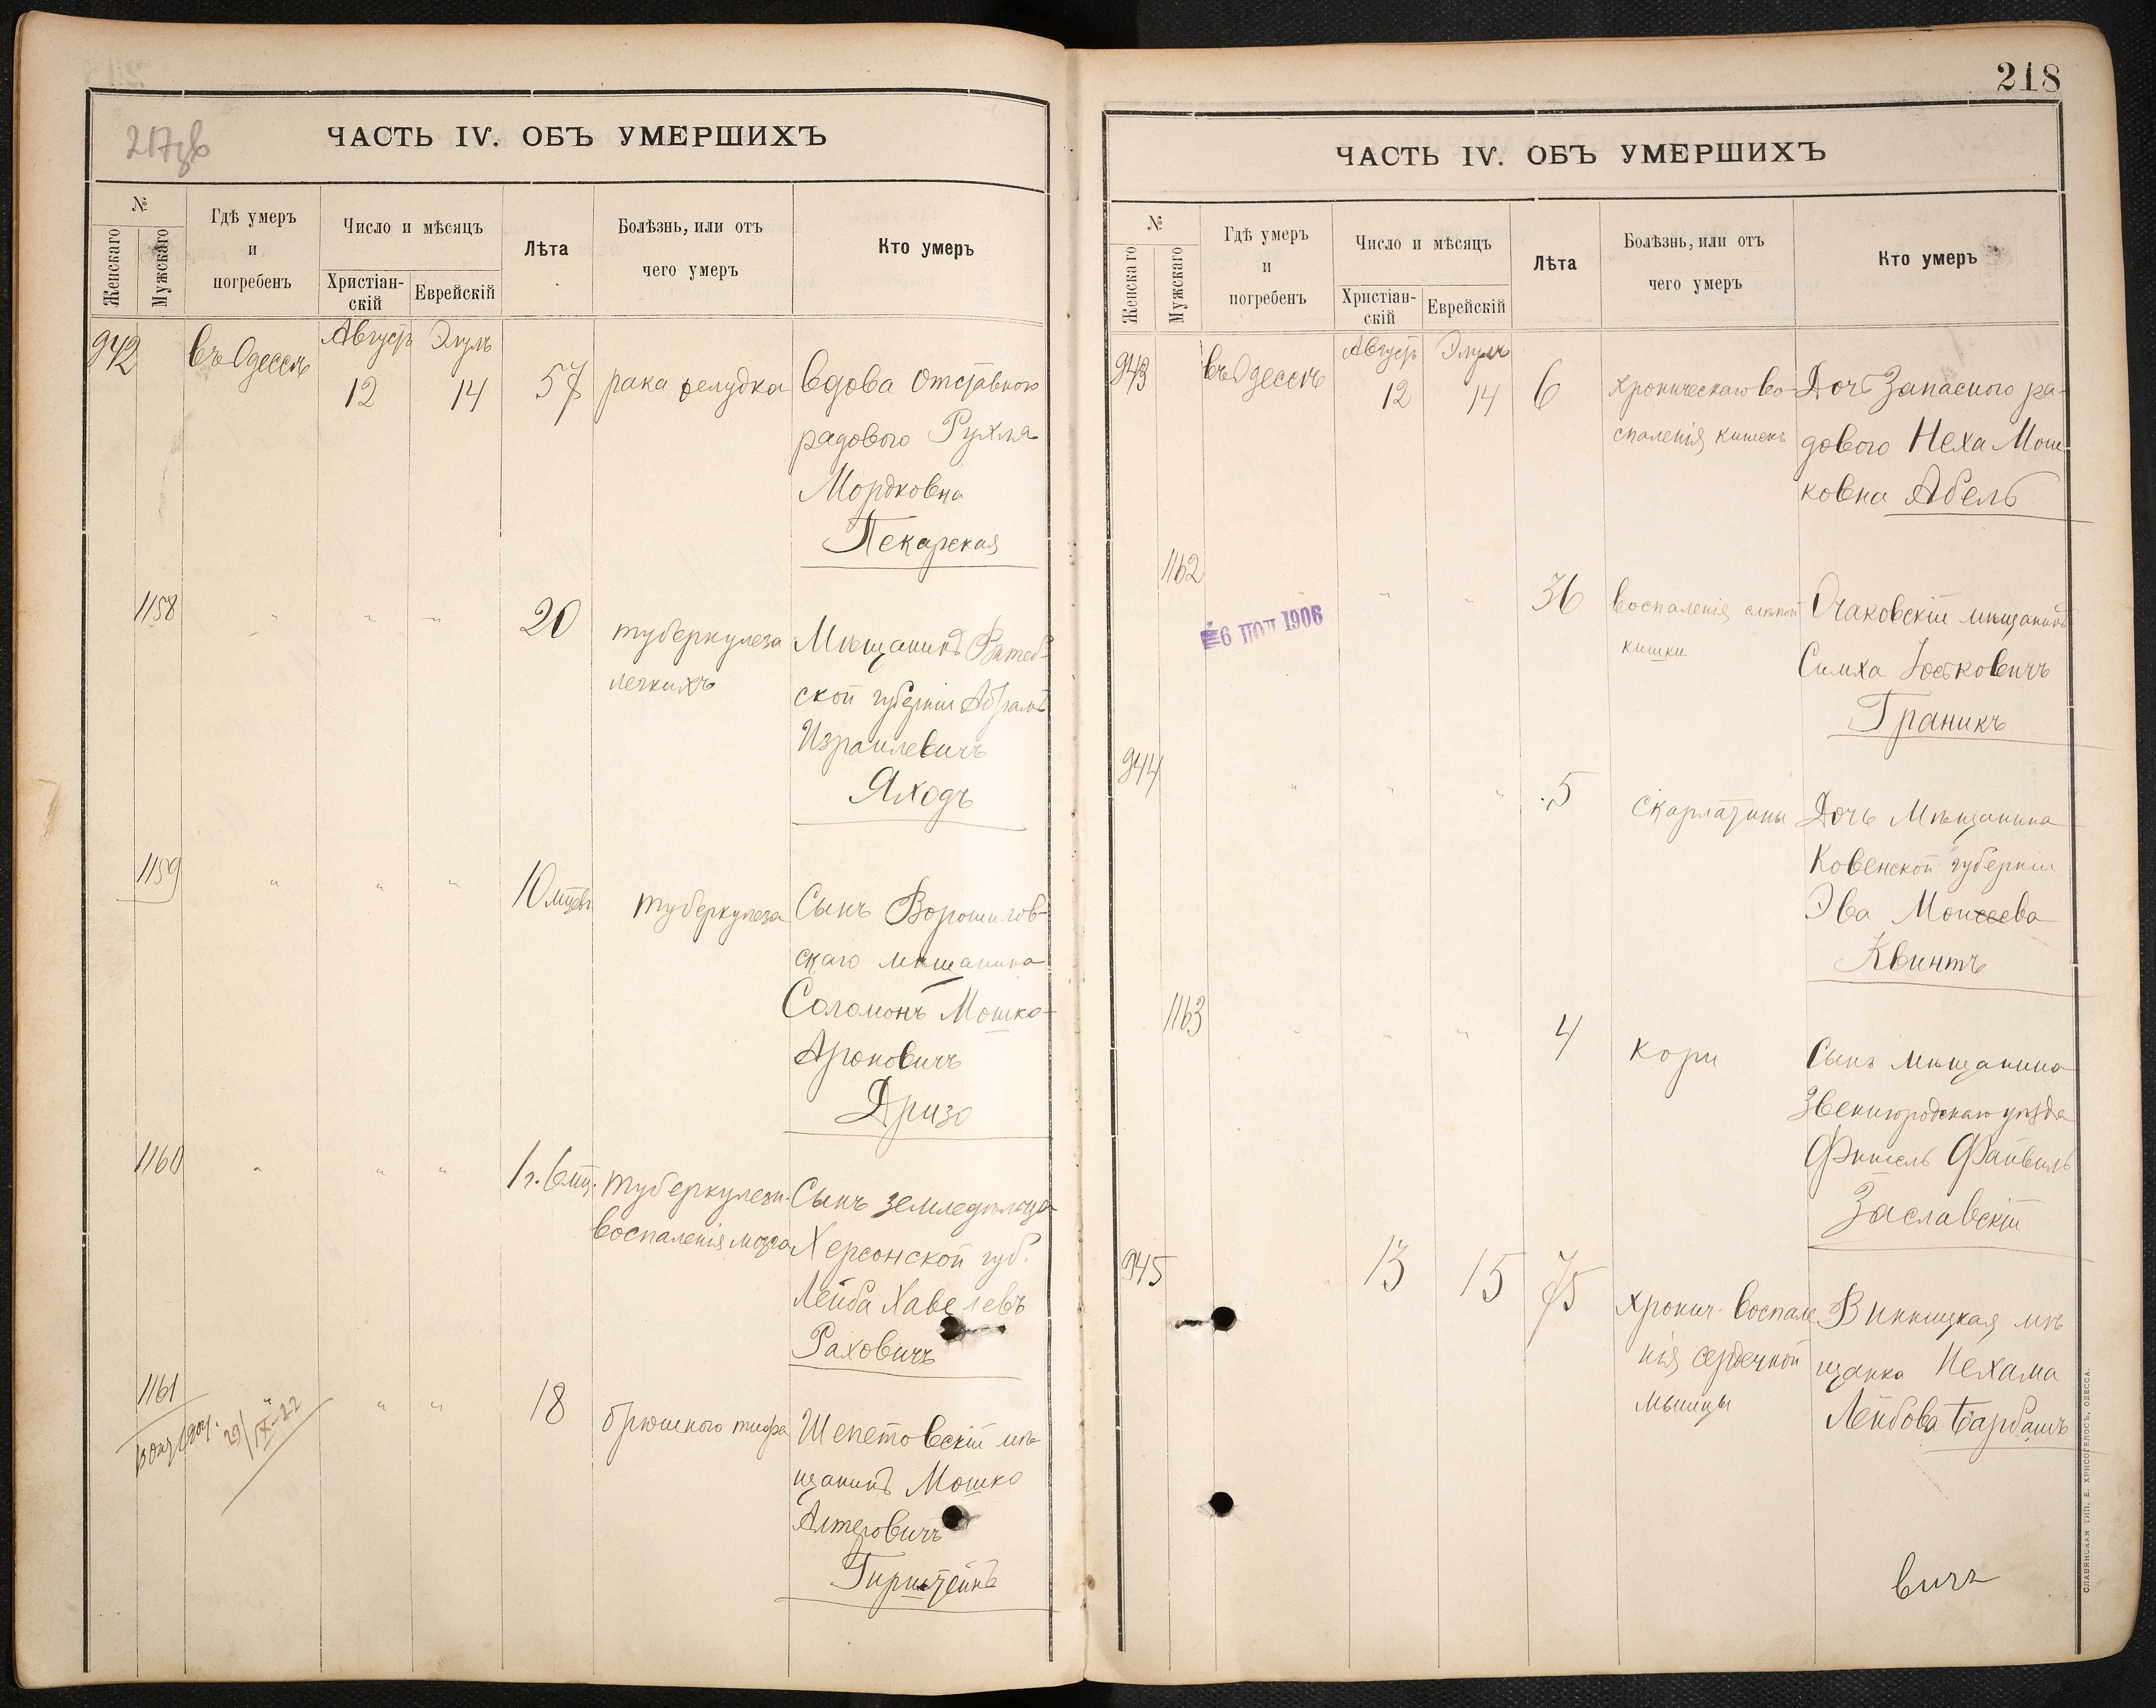 217зв
ЧАСТЬ IV. ОБЪ УМЕРШИХЪ
№
Женскаго
Мужскаго
Гдѣ умеръ
и
погребенъ
Число и мѣсяцъ
Христіан-
скій
Еврейскій
Лѣта
Болѣзнь, или отъ
чего умеръ
Кто умеръ
942
въ Одессѣ
Августъ
12
Элулъ
14
57
рака желудка
Вдова отставного
рядового Рухля
Мордковна
Пекарская
1158
" " "
20
туберкулеза
легкихъ
Мѣщанинъ Витеб-
ской губерніи Абрамъ
Израилевичъ
Яходъ
1159
" " "
10 мцвъ
туберкулеза
Сынъ Ворошилов-
скаго мѣщанина
Соломонъ Мошко-
Ароновичъ
Дризо
1160
" " "
1 г. 6 мц.
туберкулезн.
воспаленія мозга
Сынъ земледѣльца
Херсонской губ.
Лейба Хавелевъ
Раховичъ
1161
29/IX-22
" " "
18
брюшного тифа
Шепетовскій мѣ-
щанинъ Мошко
Алтеровичъ
Гирштейнъ
218
ЧАСТЬ IV. ОБЪ УМЕРШИХЪ
№
Женскаго
Мужскаго
Гдѣ умеръ
и
погребенъ
Число и мѣсяцъ
Христіан-
скій
Еврейскій
Лѣта
Болѣзнь, или отъ
чего умеръ
Кто умеръ
943
въ Одессѣ
Августъ
12
Элулъ
14
6
хроническаго во-
спаленія кишекъ
Дочь Запасного ря-
дового Неха Мош-
ковна Абель
1162
6 1906
" " "
36
воспаленія слѣпой
кишки
Очаковскій мѣщанинъ
Симха Іоськовичъ
Граникъ
944
" " "
5
скарлатины
Дочь Мѣщанина
Ковенской губерніи
Эва Моисеева
Квинтъ
1163
" " "
4
кори
Сынъ мѣщанина
Звенигородскаго уѣзда
Фишель Файвель
Заславскій
945
"
13
15
75
хронич. воспале
нія сердечной
мышцы
Винницкая мѣ
щанка Нехама
Лейбова Барбашъ
вичъ
СЛАВЯНСКАЯ ТИП. Е. ХРИСОГЕЛОСЪ, ОДЕССА.